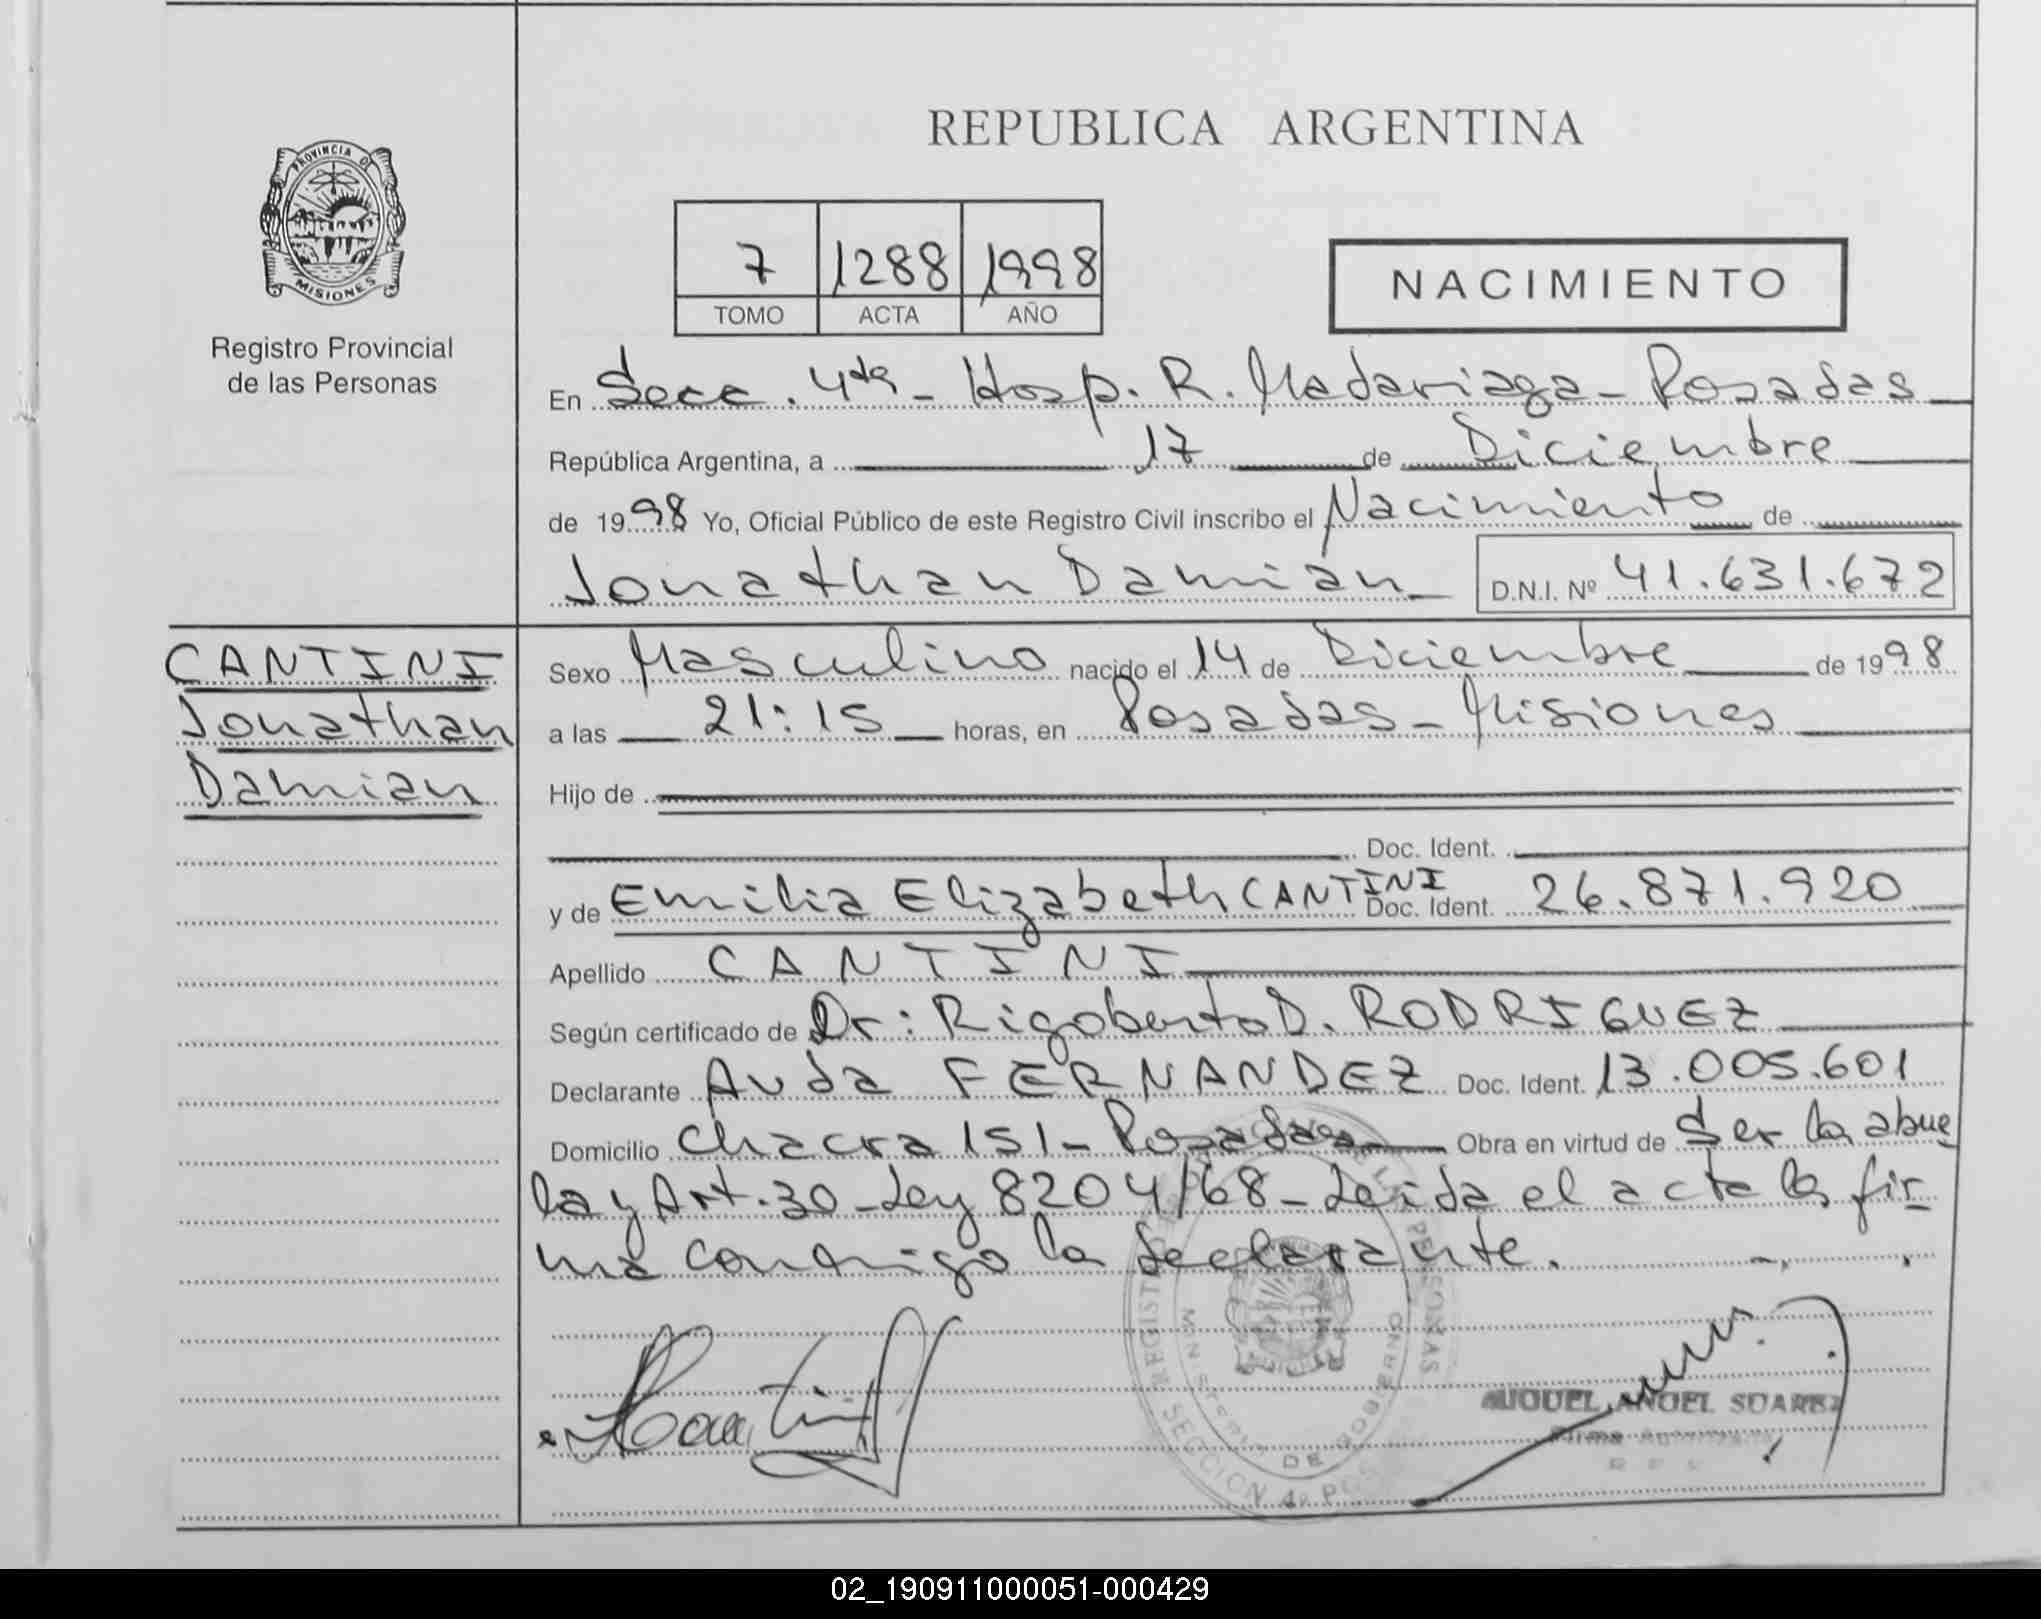 REPUBLICA ARGENTINA
PROVINCIA DE
MISIONES
Registro Provincial
de las Personas
7 1288 1998
TOMO ACTA AÑO
NACIMIENTO
En Secc. 4ta - Hosp. R. Madariaga - Posadas
República Argentina, a 17 de Diciembre
de 1998 Yo, Oficial Público de este Registro Civil inscribo el Nacimiento de
Jonathan Damian D.N.I. Nº 41.631.672
CANTINI
Jonathan
Damian
Sexo Masculino nacido el 14 de Diciembre de 1998
a las 21:15 horas, en Posadas - Misiones
Hijo de
Doc. Ident.
y de Emilia Elizabeth CANTINI Doc. Ident. 26.871.920
Apellido CANTINI
Según certificado de Dr: Rigoberto D. RODRIGUEZ
Declarante Auda FERNANDEZ Doc. Ident. 13.005.601
Domicilio Chacra 151 - Posadas Obra en virtud de Ser la abue
la y Art. 30 - Ley 8204/68 - Leida el acta la fir
ma conmigo la declarante.
MIGUEL ANGEL SUAREZ
Firma Autorizada
MINISTERIO DE GOBIERNO
02_190911000051-000429